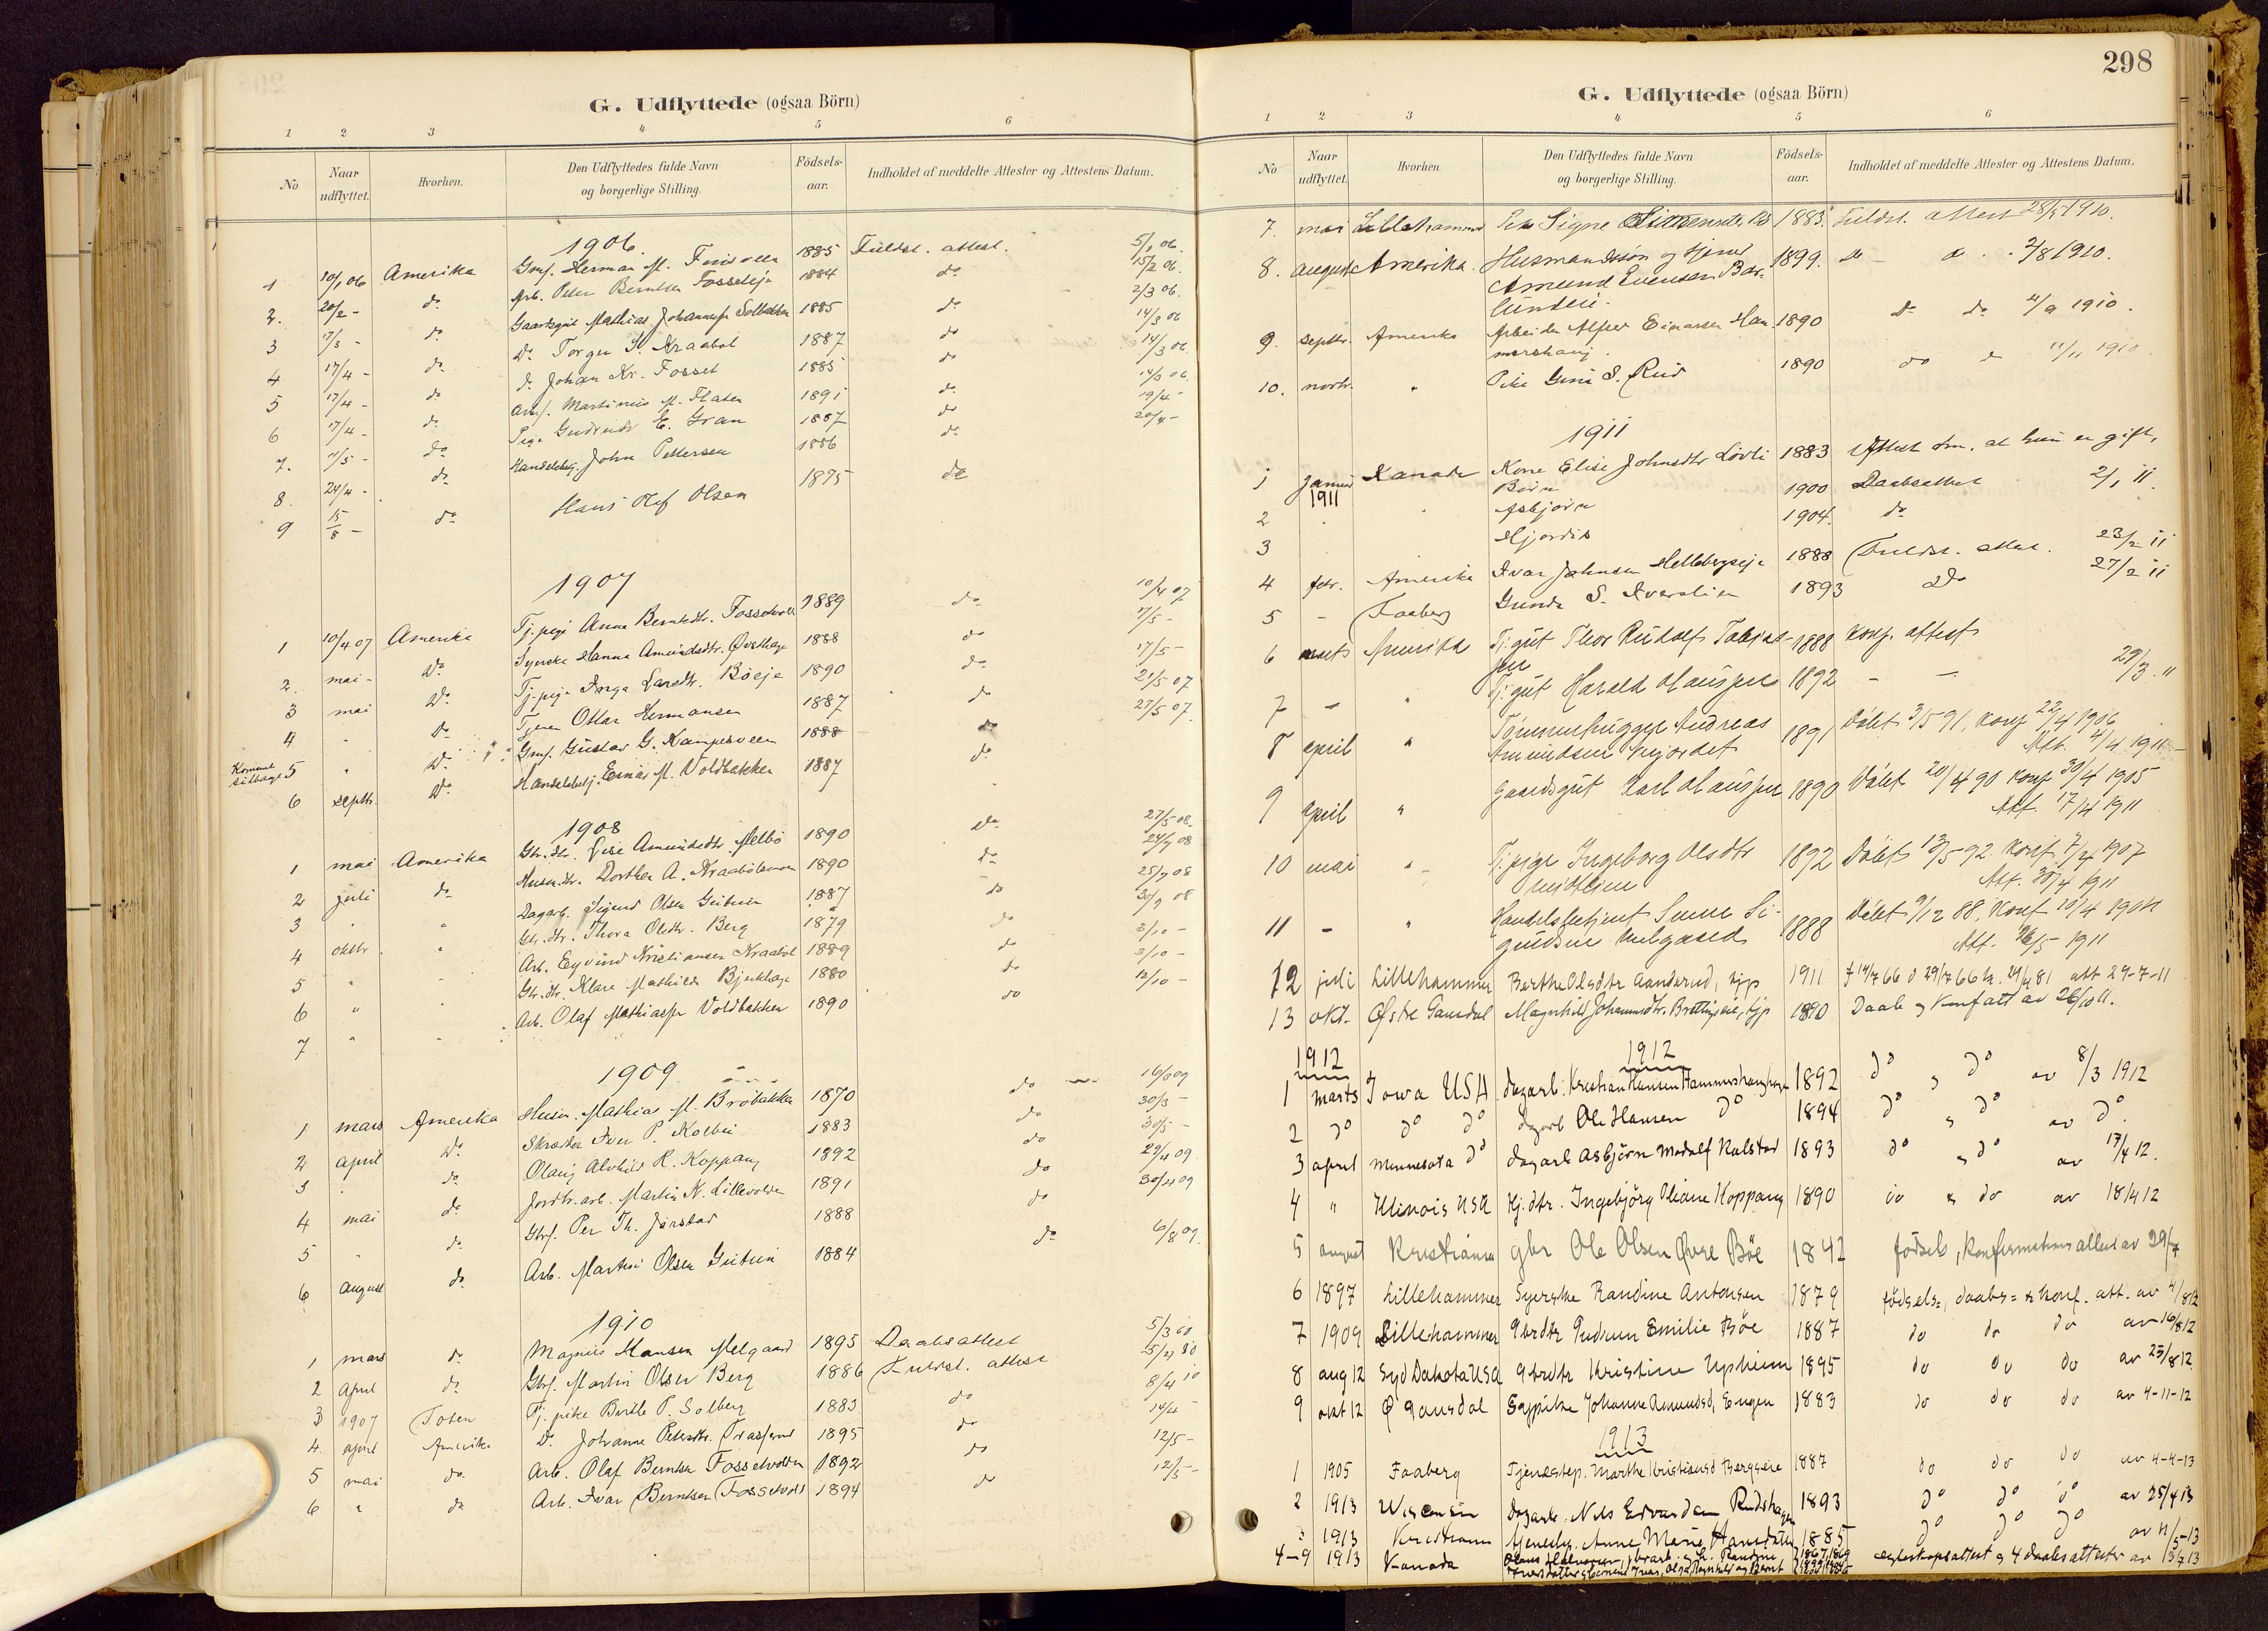 G. Udflyttede (ogsaa Börn)
1 2 3 4 5 6
No
Naar udflyttet.
Hvorhen.
Den Udflyttedes fulde Navn og borgerlige Stilling.
Födsels-aar.
Indholdet af meddelte Attester og Attestens Datum.
1906
1 10/1 06 Amerika Herman M. 1885 Fuldst. attest. 5/1 06.
2. 20/2 - do Arb. Peter Berntsen Fosseteje 1884 do 15/2 06.
3 do Gaardsgut Mathias Johannessen Solbakken 1885 do 2/3 06.
4 17/4 - do do Torger S. Kraabøl 1887 do 14/3 06
5 17/4 - do do Johan Kr. Fosset 1885 do 14/3 06.
6 17/4 - do Martinius M. Flaten 1891 do 14/3 06.
7. 11/5 - do Pige Gudrude E. Gran 1887 do 19/4 -
8. 24/4 - do Handelsbetj. John Pettersen 1886 do 20/4 -
9 15/8 - do Hans Olaf Olsen 1875 do
1907
1 10/4 07 Amerika Tj. pige Anna Berntsdtr. Fossetvold 1889 do 10/4 07
2. mai - do Syerske Hanna Amundsdtr. Øvsthage 1888 do 7/5 -
3 mai do Tj. pige Inga Larsdtr. Böeje 1890 do 17/5 -
4 " do Ottar Hermansen 1887 do 21/5 07
Kommet tilbage 5 " do Gustav G. Kampesveen 1888 do 27/5 07.
6 septbr. do Handelsbetj. Einar M. Voldbakken 1887 do
1908
1 mai Amerika Gbr. dtr. Lise Amundsdtr. Melbö 1890 do 27/5 08.
2 juli do Dorthea A. 1890 do 24/7 08
3 " " Dagarb. Sigurd Olsen 1887 do 25/7 08
4 oktbr " Gbr. dtr. Thora Olsdtr. Berg 1879 do 30/9 08
5 " " Arb. Eyvind Kristiansen Kraabøl 1889 do 2/10 -
6 " " Gbr. dtr. Klara Mathilde 1880 do 2/10 -
7 " " Arb. Olaf Mathiassen Voldbakken 1890 do 12/10 -
1909
1 mars Amerika Husm. Mathias M. Bröbakken 1870 do
2 april do Skrædder Iver P. Kolbu 1883 do 30/3 -
3 " do Olaug Alvhild R. Koppang 1892 do 30/5 -
4 mai do Jordbr. arb. Martin K. Lillevolden 1891 do 29/4 09.
5 " do Gbrs. Per Th. Jörstad 1888 do 30/4 09
6 august do Arb. Martin Olsen 1884 do 6/8 09.
1910
1 mars do Magnus Hansen Melgaard 1895 Daabsattest 5/3 10
2 April do Gbrs. Martin Olsen Berg 1886 Fuldst. attest
3 1907 Toten Tj. pike Berthe P. Solberg 1883 do 8/4 10
4. april Amerika do Johanne Petersdtr. 1895 do 14/4 -
5 mai do Arb. Olaf Berntsen Fossetvolden 1892 do 12/5 -
6 " do Arb. Ivar Berntsen Fossetvold 1894 do 12/5 -
298
G. Udflyttede (ogsaa Börn)
1 2 3 4 5 6
No
Naar udflyttet.
Hvorhen
Den Udflyttedes fulde Navn og borgerlige Stilling.
Födsels-aar.
Indholdet af meddelte Attester og Attestens Datum.
7. mai Lillehammer Signe 1883. Fuldst. attest 28/5 1910.
8. august Amerika. Husmandssön og Hjemst 1899. do - do 2/8 1910.
Amund Evensen Bar-
lundeie.
9. septbr. Amerika Arbeider Alfred Einarsen Ham- 1890 do do 4/9 1910.
mershaug.
10. novbr. " Pike Gina S. Rud 1890 do do 11/11 1910
1911
1 Januar Kanada Kone Elise Johnsdtr Lövli 1883 Attest om, at hun er gift,
1911 Börn
2 " " Asbjörn 1900 Daabsattest 2/1 11.
3 Hjördis 1904. do
4 febr. Amerika Ivar Johnsen Hellebergseje 1888 Fuldst. attest. 23/2 11
5 - Faaberg Gunda S. Iverslien 1893 do 27/2 11
6 marts Amerika Tj. gut Thor Rudolf Tobias- 1888 konf. attest
sen
7 - " Tj. gut Harald Hanssen 1892 - - 29/3 11
8 april " Tömmerhugger Andreas 1891 Döbt 3/5 91, konf 22/4 1906
Amundsen Att. 4/4 1911 -
9 April " Gaardsgut Karl Hanssen 1890 Döbt 20/4 90 konf 30/4 1905
Att. 17/4 1911
10 mai " Tj. pige Ingeborg Olsdtr 1892 Döbt 13/5 92. Konf 7/4 1907
Att. 30/4 1911
11 - " Handelsbetjent Sunne Si- 1888 Döbt 9/12 88, Konf 10/4 1904
gurdsen Melgaard Att. 1911
12 juli Lillehammer Berthe Olsdtr Aanderud, tjp 1911 f 14/7 66 d 29/7 66 k. 24/4 81 att 29-7-11
13 okt. Østre Gausdal Magnhild Johannsdtr. 1890 Daab og Konf att av 26/10 11.
1912 1912
1 marts Iowa USA dagarb. Kristian Hansen Hammershaughagen 1892 do " do av 8/3 1912
2 do do do dagarb Ole Hansen do 1894 do " do av do.
3 april Minnesota do dagarb Asbjörn Modolf Kalstad 1893 do " do av 17/4 12.
4 " Illinois USA Kj. dtr. Ingebjörg Oliane Koppang 1890 do & do av 18/4 12
5 august Kristiania gbr Ole Olsen Øvre Böe 1842 födsels, Konfirmations attest av 29/7
6 1897 Lillehammer Syerske Randine Antonsen 1879 födsels=, daabs= & konf. att. av 4/8 12
7 1909 Lillehammer Gbrdtr Gudrun Emilie Böe 1887 do do do av 16/8 12
8 aug 12 Syd Dakota USA Gbrdtr Kristine Upheim 1895 do do do av 23/8 12.
9 okt 12 Ø Gausdal Johanne Amundsd, Engen 1883 do do do av 4-11-12
1913
1 1905 Faaberg Tjenestep. Marthe Kristiansd Bergseie 1887 do do do av 4-4-13
2 1913 Wisconsin Dagarb. Nils Edvardsen Rudshagen 1893 do do do av 25/4 13
3 1913 Kristiania tjenestep. Anne Marie Hansdatter 1885 do do do av 11/5-13
4-9 1913 Kanada 1867, 1869 egteskapsattest og 4 daabsattester av